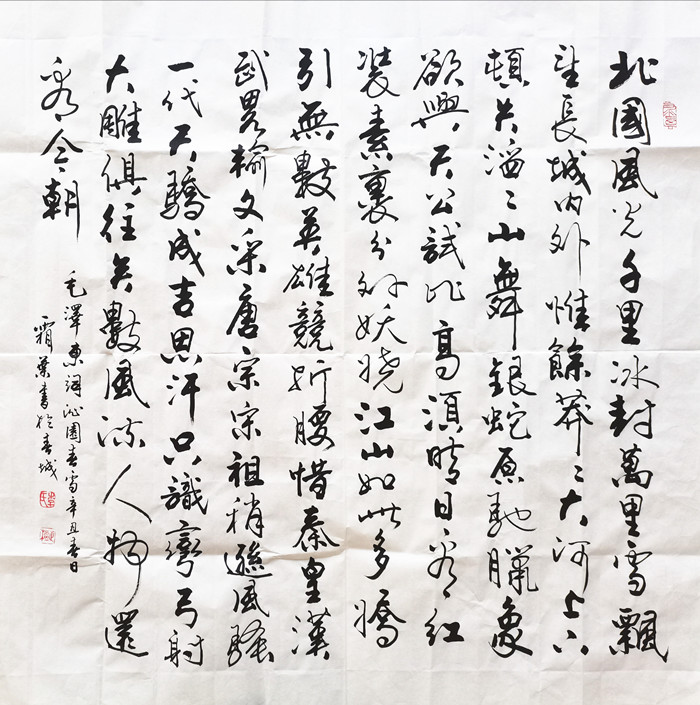 北國風光千里冰封萬里雪飄
望長城内外惟餘莽〻大河上下
頓失滔〻山舞銀蛇原馳臘象
欲與天公試比高須晴日看紅
裝素裹分外妖嬈江山如此多嬌
引無數英雄競折腰惜秦皇漢
武畧輸文采唐宗宋祖稍遜風騷
一代天驕成吉思汗只識彎弓射
大雕俱往矣數風流人物還
看今朝
毛澤東詞沁園春雪辛丑春日
霜葉書於春城